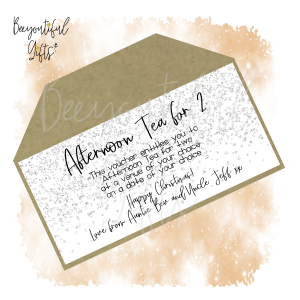 Beeyoutiful
Gifts®
Afternoon Tea for 2
This voucher entitles you to
Afternoon Tea for two
at a venue of your choice
on a date of your choice
Happy Christmas!
Love from Auntie Bex and Uncle Jeff xx